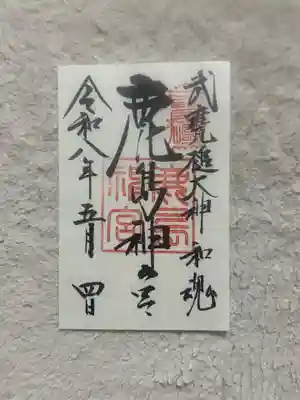 武甕槌大神 和魂
鹿島神宮
鹿島
神宮
令和八年五月 四日